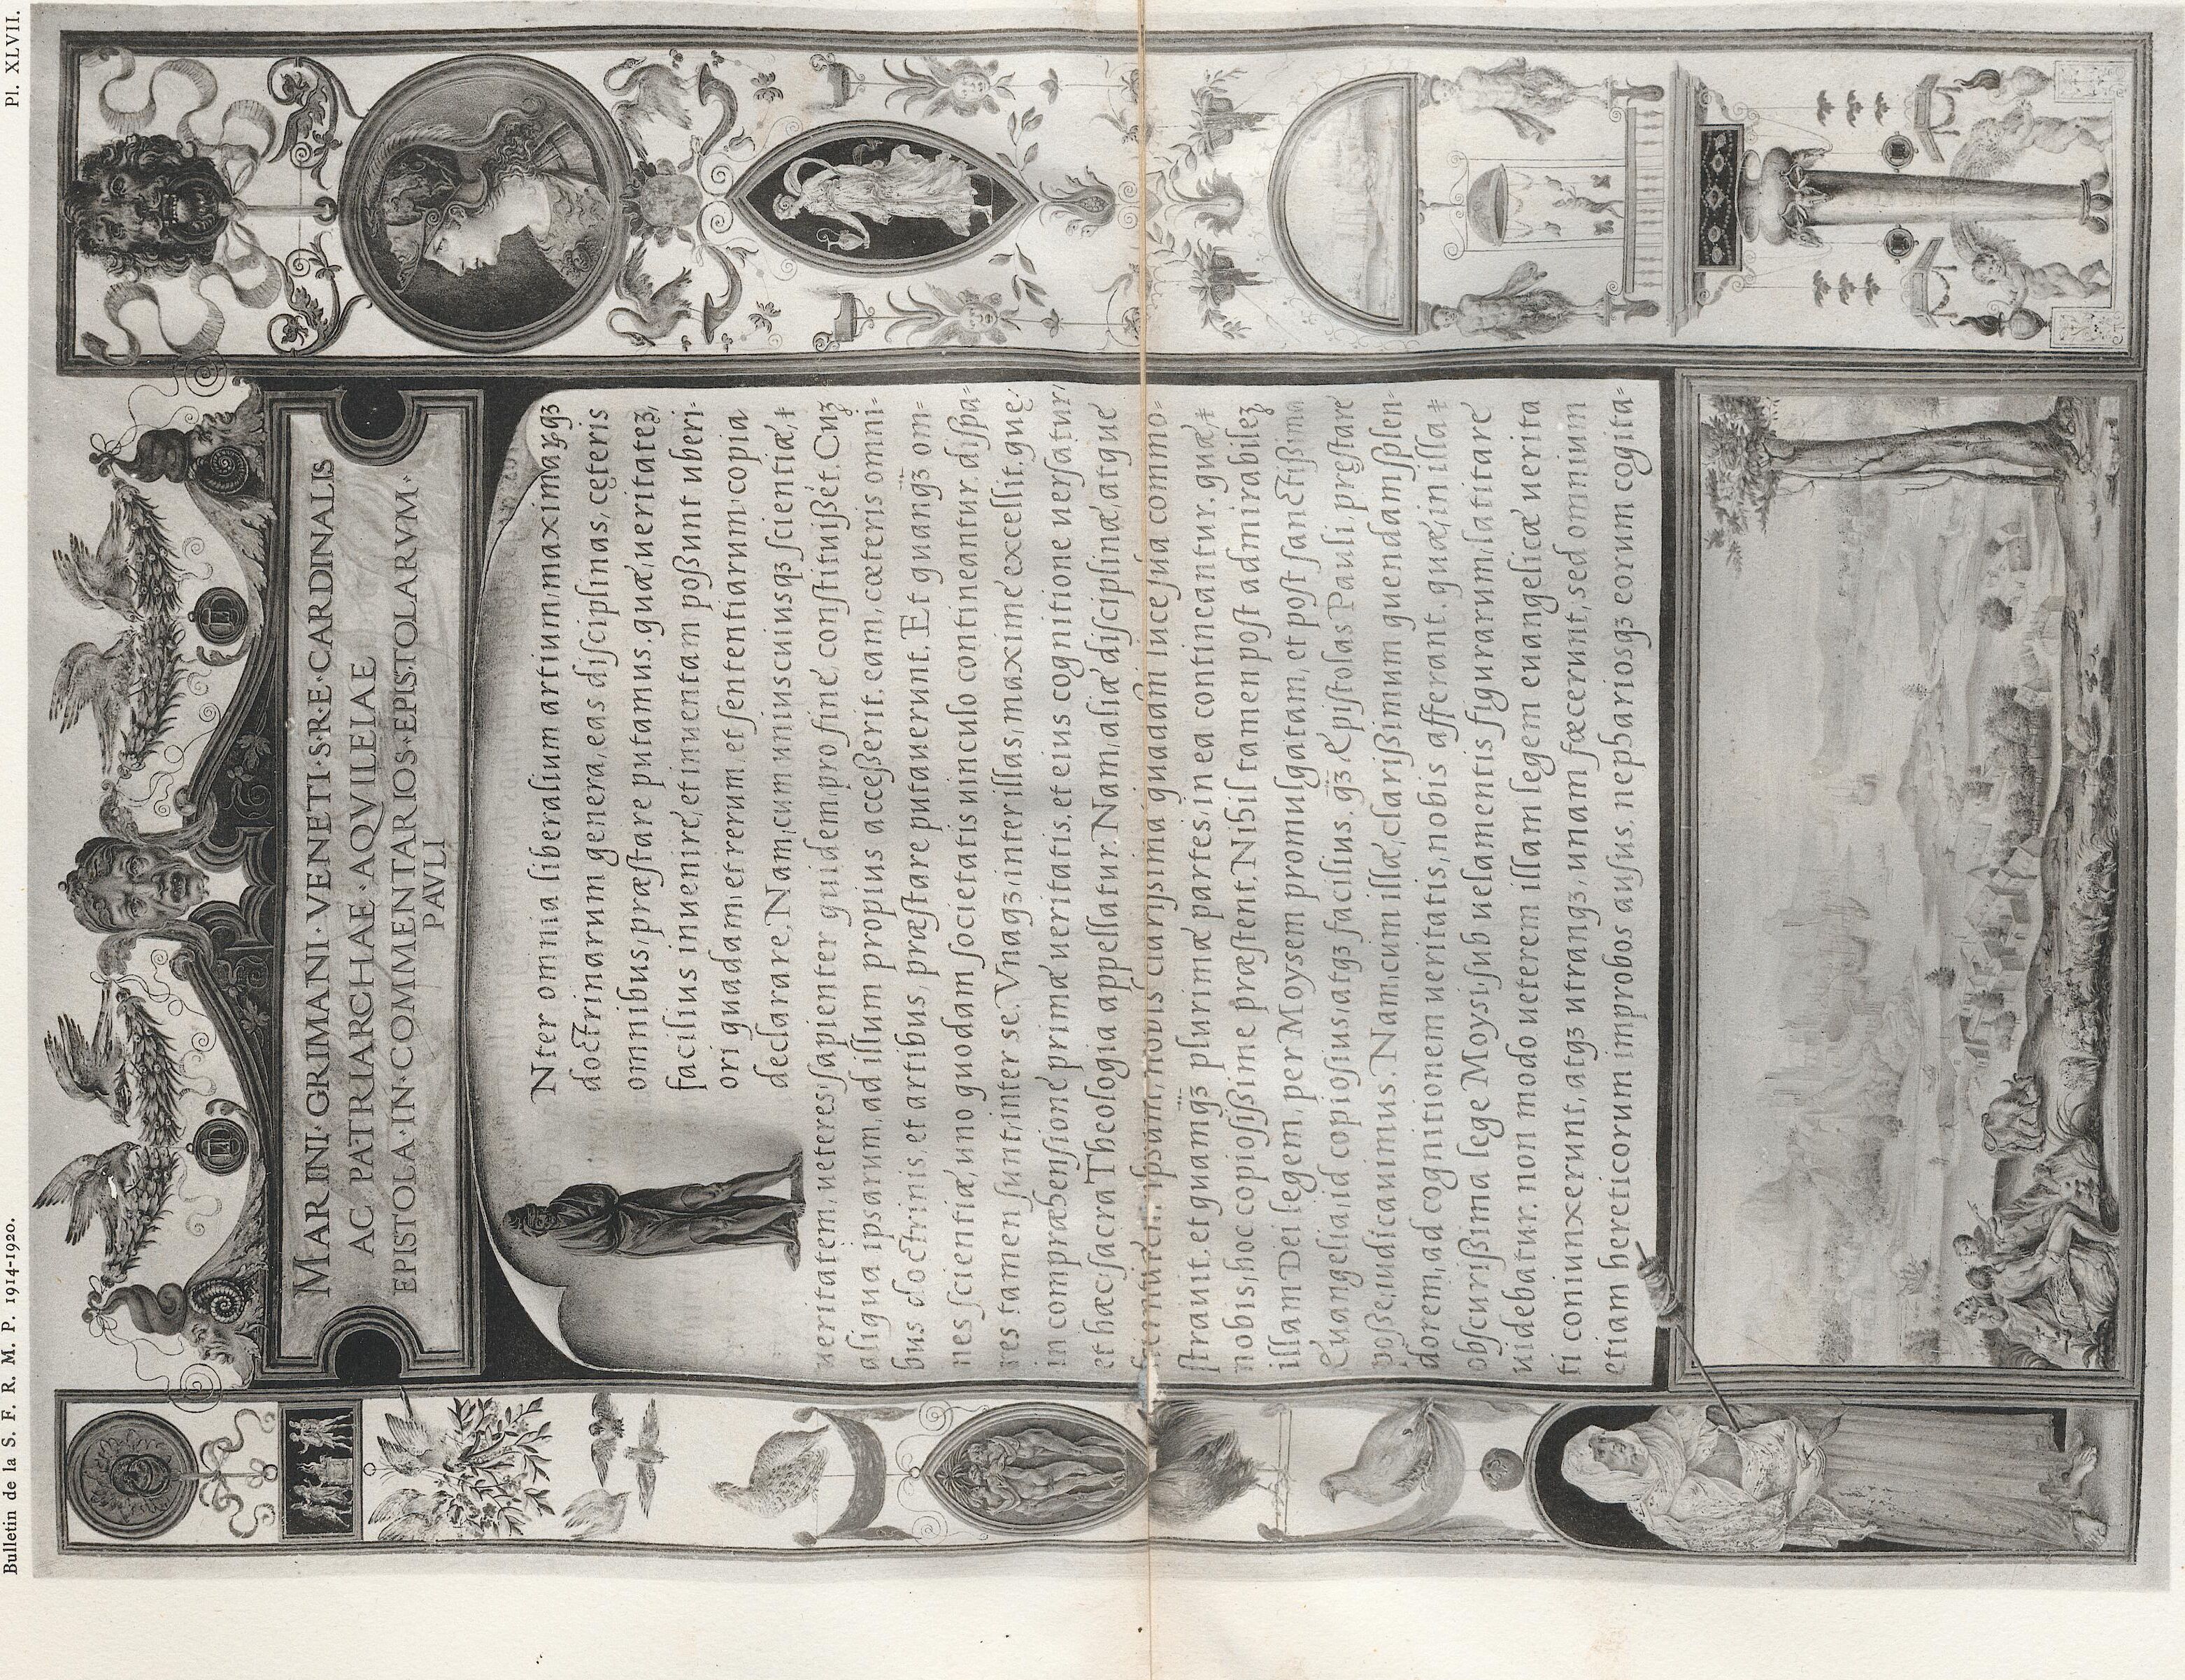 Bulletin de la S. F. R. M. P. 1914-1920.
Pl. XLVII.
MARINI · GRIMANI · VENETI · S · R E · CARDINALIS
AC PATRIARCHAE · AQVILEIAE
EPISTOLA · IN · COMMENTARIOS · EPISTOLARVM ·
PAVLI
Nter omnia liberalium artium, maximaꝝqꝫ
doctrinarum genera, eas disciplinas, cęteris
omnibus, præstare putamus. quæ, ueritateꝫ,
facilius inuenire, et inuentam poßunt uberi-
ori quadam, et rerum, et sententiarum, copia
declarare. Nam, cum uniuscuiusqꝫ scientiæ, &
ueritatem, ueteres, sapienter quidem, pro fine, constituißet. Cuꝫ
aliqua ipsarum, ad illum propius acceßerit, eam, cæteris omni-
bus doctrinis, et artibus, præstare putauerunt. Et quanqꝫ om-
nes scientiæ, uno quodam societatis uinculo contineantur. dispa-
res tamen sunt, inter se. Vnaqꝫ, inter illas, maxime excellit, que,
in compræhensione primæ ueritatis, et eius cognitione uersatur,
et hæc, sacra Theologia appellatur. Nam, aliæ disciplinæ, atque
ipsam, nobis clarißima quadam luce sua commo-
strauit. et quamqꝫ plurimæ partes, in ea contineantur. quæ, &
nobis, hoc copiosißime præstent. Nihil tamen post admirabileꝫ
illam Dei legem, per Moysem promulgatam, et post sanctißima
Euangelia, id copiosius, atqꝫ facilius, qꝫ Epistolas Pauli, pręstare
poße, iudicauimus. Nam, cum illæ, clarißimum quendam splen-
dorem, ad cognitionem ueritatis, nobis afferant. quæ, in illa &
obscurißima lege Moysi, sub uelamentis figurarum, latitare
uidebatur. non modo ueterem illam legem euangelicæ uerita
ti coniunxerunt, atqꝫ utranqꝫ, unam fœcerunt, sed omnium
etiam hereticorum improbos ausus, nephariosqꝫ eorum cogita-